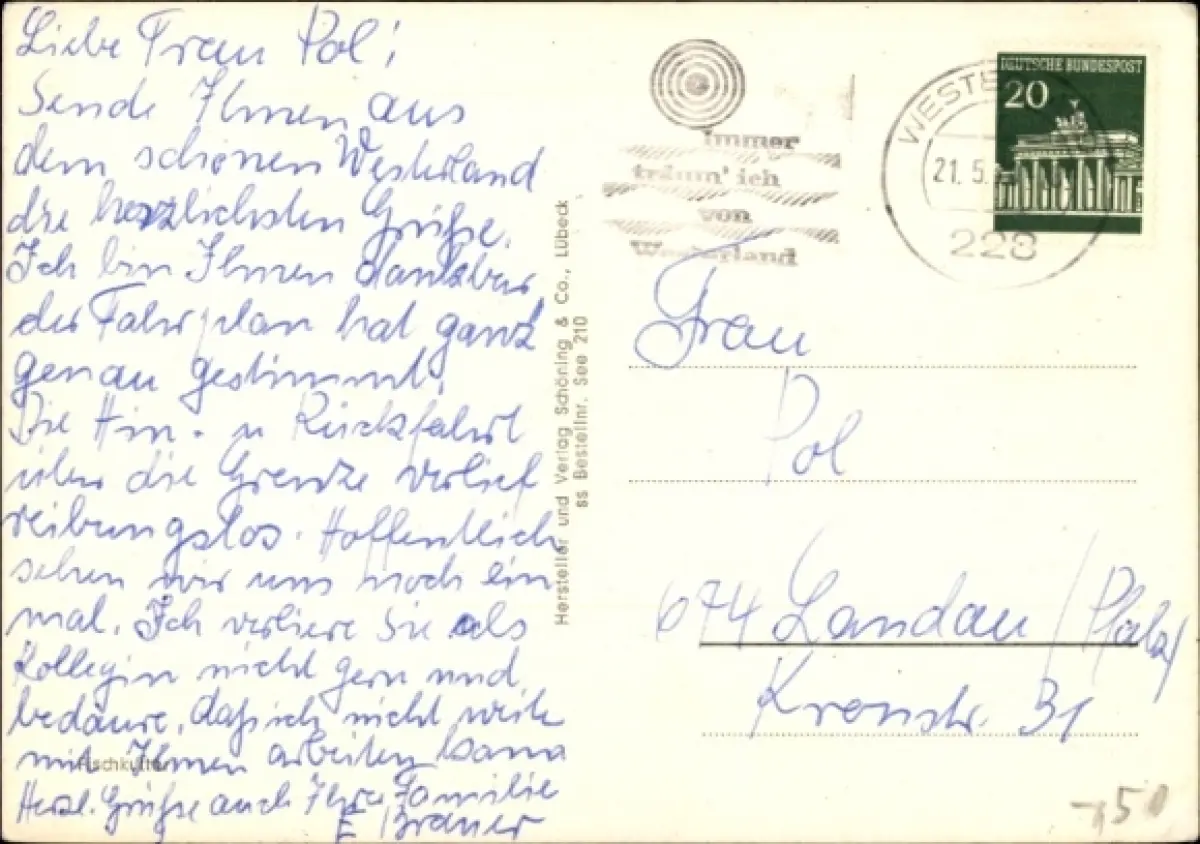 Liebe Frau Pol!
Sende Ihnen aus
dem schönen Westerland
die herzlichsten Grüße.
Ich bin Ihnen dankbar,
der Fahrplan hat ganz
genau gestimmt.
Die Hin- u Rückfahrt
über die Grenze verlief
reibungslos. Hoffentlich
sehen wir uns noch ein
mal. Ich verliere Sie als
Kollegin nicht gern und
bedaure, daß ich nicht weiter
mit Ihnen arbeiten kann
Herzl. Grüße auch Ihrer Familie
E Brauer
Fischkutter
Hersteller und Verlag Schöning & Co., Lübeck
ss Bestellnr. See 210
Immer
träum' ich
von
Westerland
21. 5.
228
DEUTSCHE BUNDESPOST
20
Frau
Pol
674 Landau / Pfalz
31
150